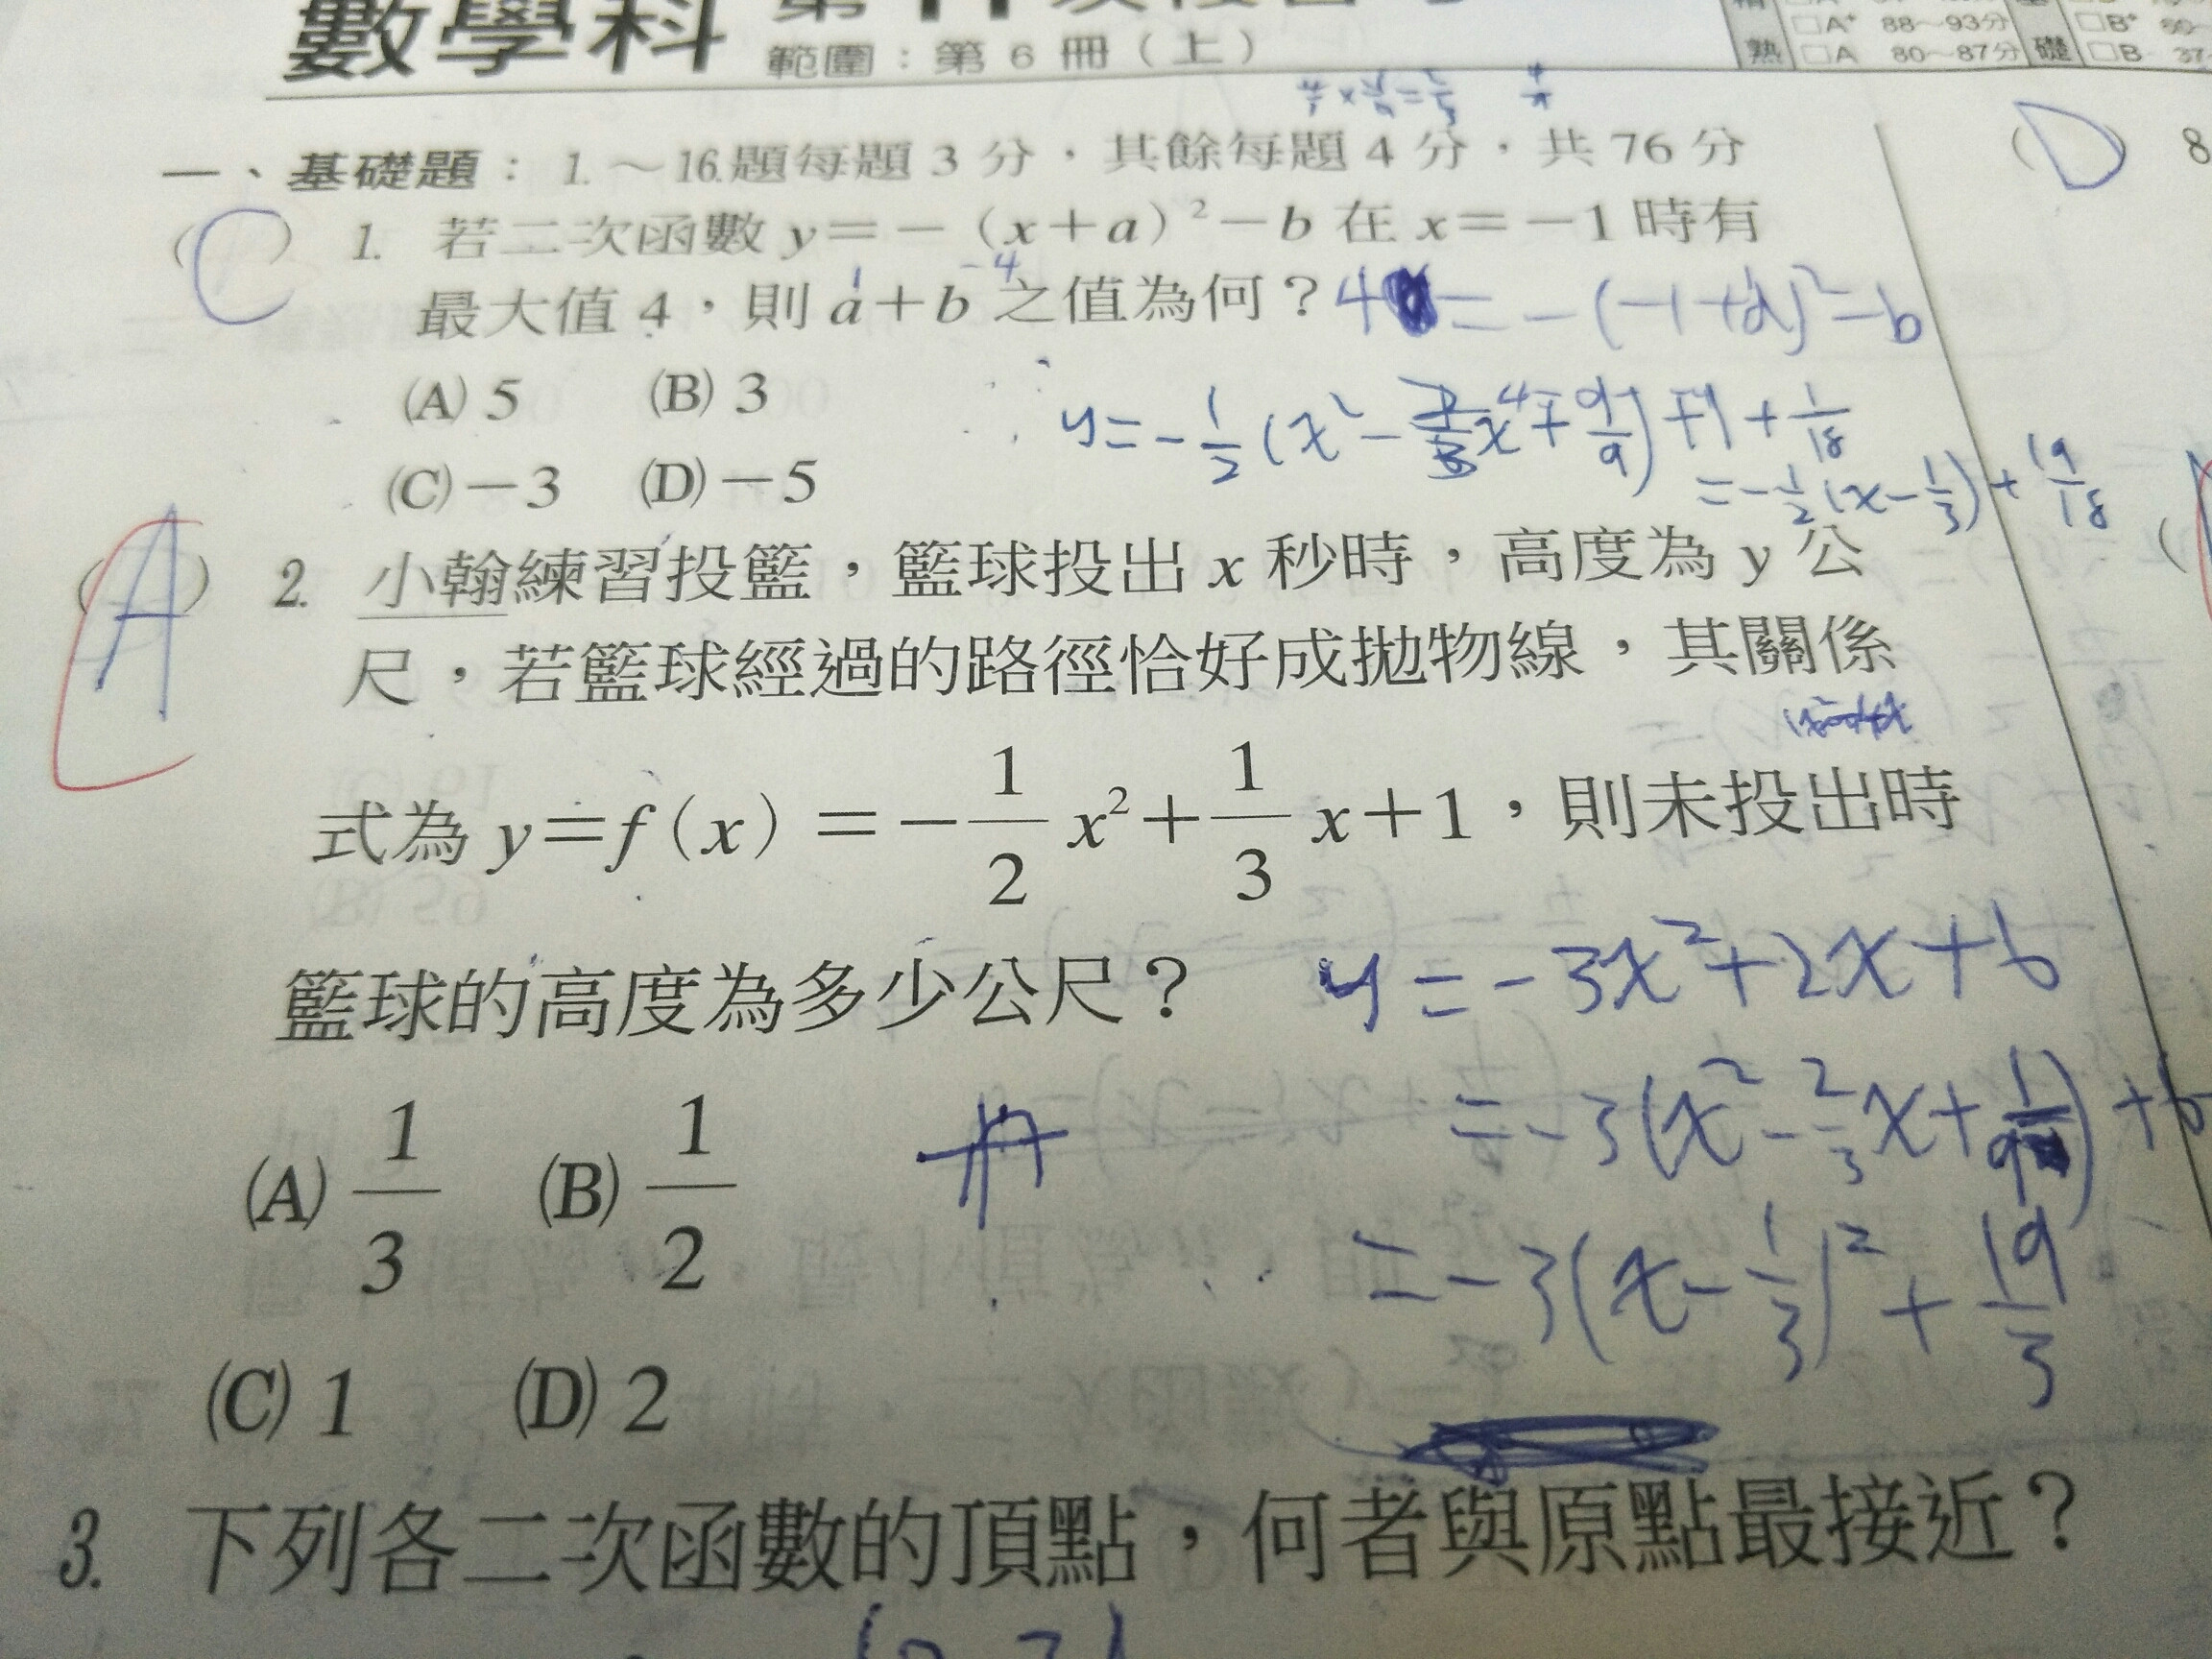 數學科
範圍：第6冊（上）
熟
□A⁺ 88～93分
□A 80～87分
礎
□B⁺
□B
一、基礎題：1.～16.題每題3分，其餘每題4分，共76分
(C) 1. 若二次函數 y＝－（x＋a）²－b 在 x＝－1 時有
1 -4
最大值 4，則 a＋b 之值為何？ 4 = -(-1+a)²-b
(A) 5 (B) 3
(C)－3 (D)－5
= -1/2(x-1/3)+19/18
(A) 2. 小翰練習投籃，籃球投出 x 秒時，高度為 y 公
尺，若籃球經過的路徑恰好成拋物線，其關係
式為 y＝f（x）＝－1/2 x²＋1/3 x＋1，則未投出時
籃球的高度為多少公尺？ y=-3x²+2x+6
(A) 1/3 (B) 1/2
=-3(x²-2/3x+1/9)+6
=-3(x-1/3)²+19/3
(C) 1 (D) 2
3. 下列各二次函數的頂點，何者與原點最接近？
(D) 8